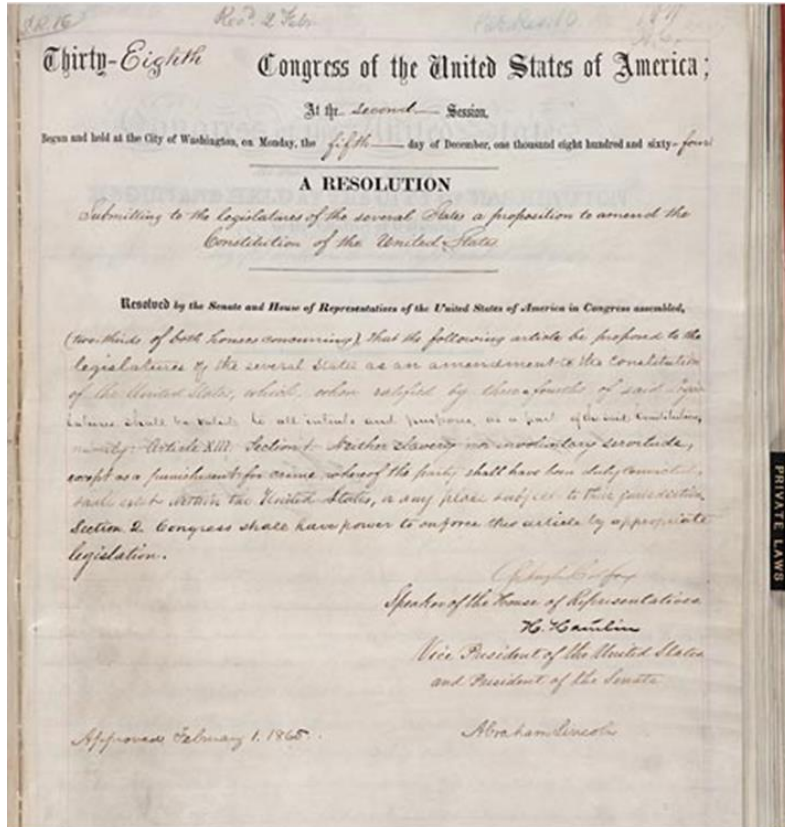 S.R. 16 Recd. 2 Feby
Thirty-Eighth Congress of the United States of America;
At the second Session,
Begun and held at the City of Washington, on Monday, the fifth day of December, one thousand eight hundred and sixty-four
A RESOLUTION
Submitting to the legislatures of the several States a proposition to amend the
Constitution of the United States.
Resolved by the Senate and House of Representatives of the United States of America in Congress assembled,
(two-thirds of both houses concurring), That the following article be proposed to the
legislatures of the several States as an amendment to the Constitution
of the United States, which, when ratified by three-fourths of said legis-
latures shall be valid, to all intents and purposes, as a part of the said Constitution,
namely: Article XIII. Section 1. Neither slavery nor involuntary servitude,
except as a punishment for crime whereof the party shall have been duly convicted,
shall exist within the United States, or any place subject to their jurisdiction.
Section 2. Congress shall have power to enforce this article by appropriate
legislation.
Schuyler Colfax
Speaker of the House of Representatives
H. Hamlin
Vice President of the United States
and President of the Senate
Approved, February 1. 1865. Abraham Lincoln
PRIVATE LAWS